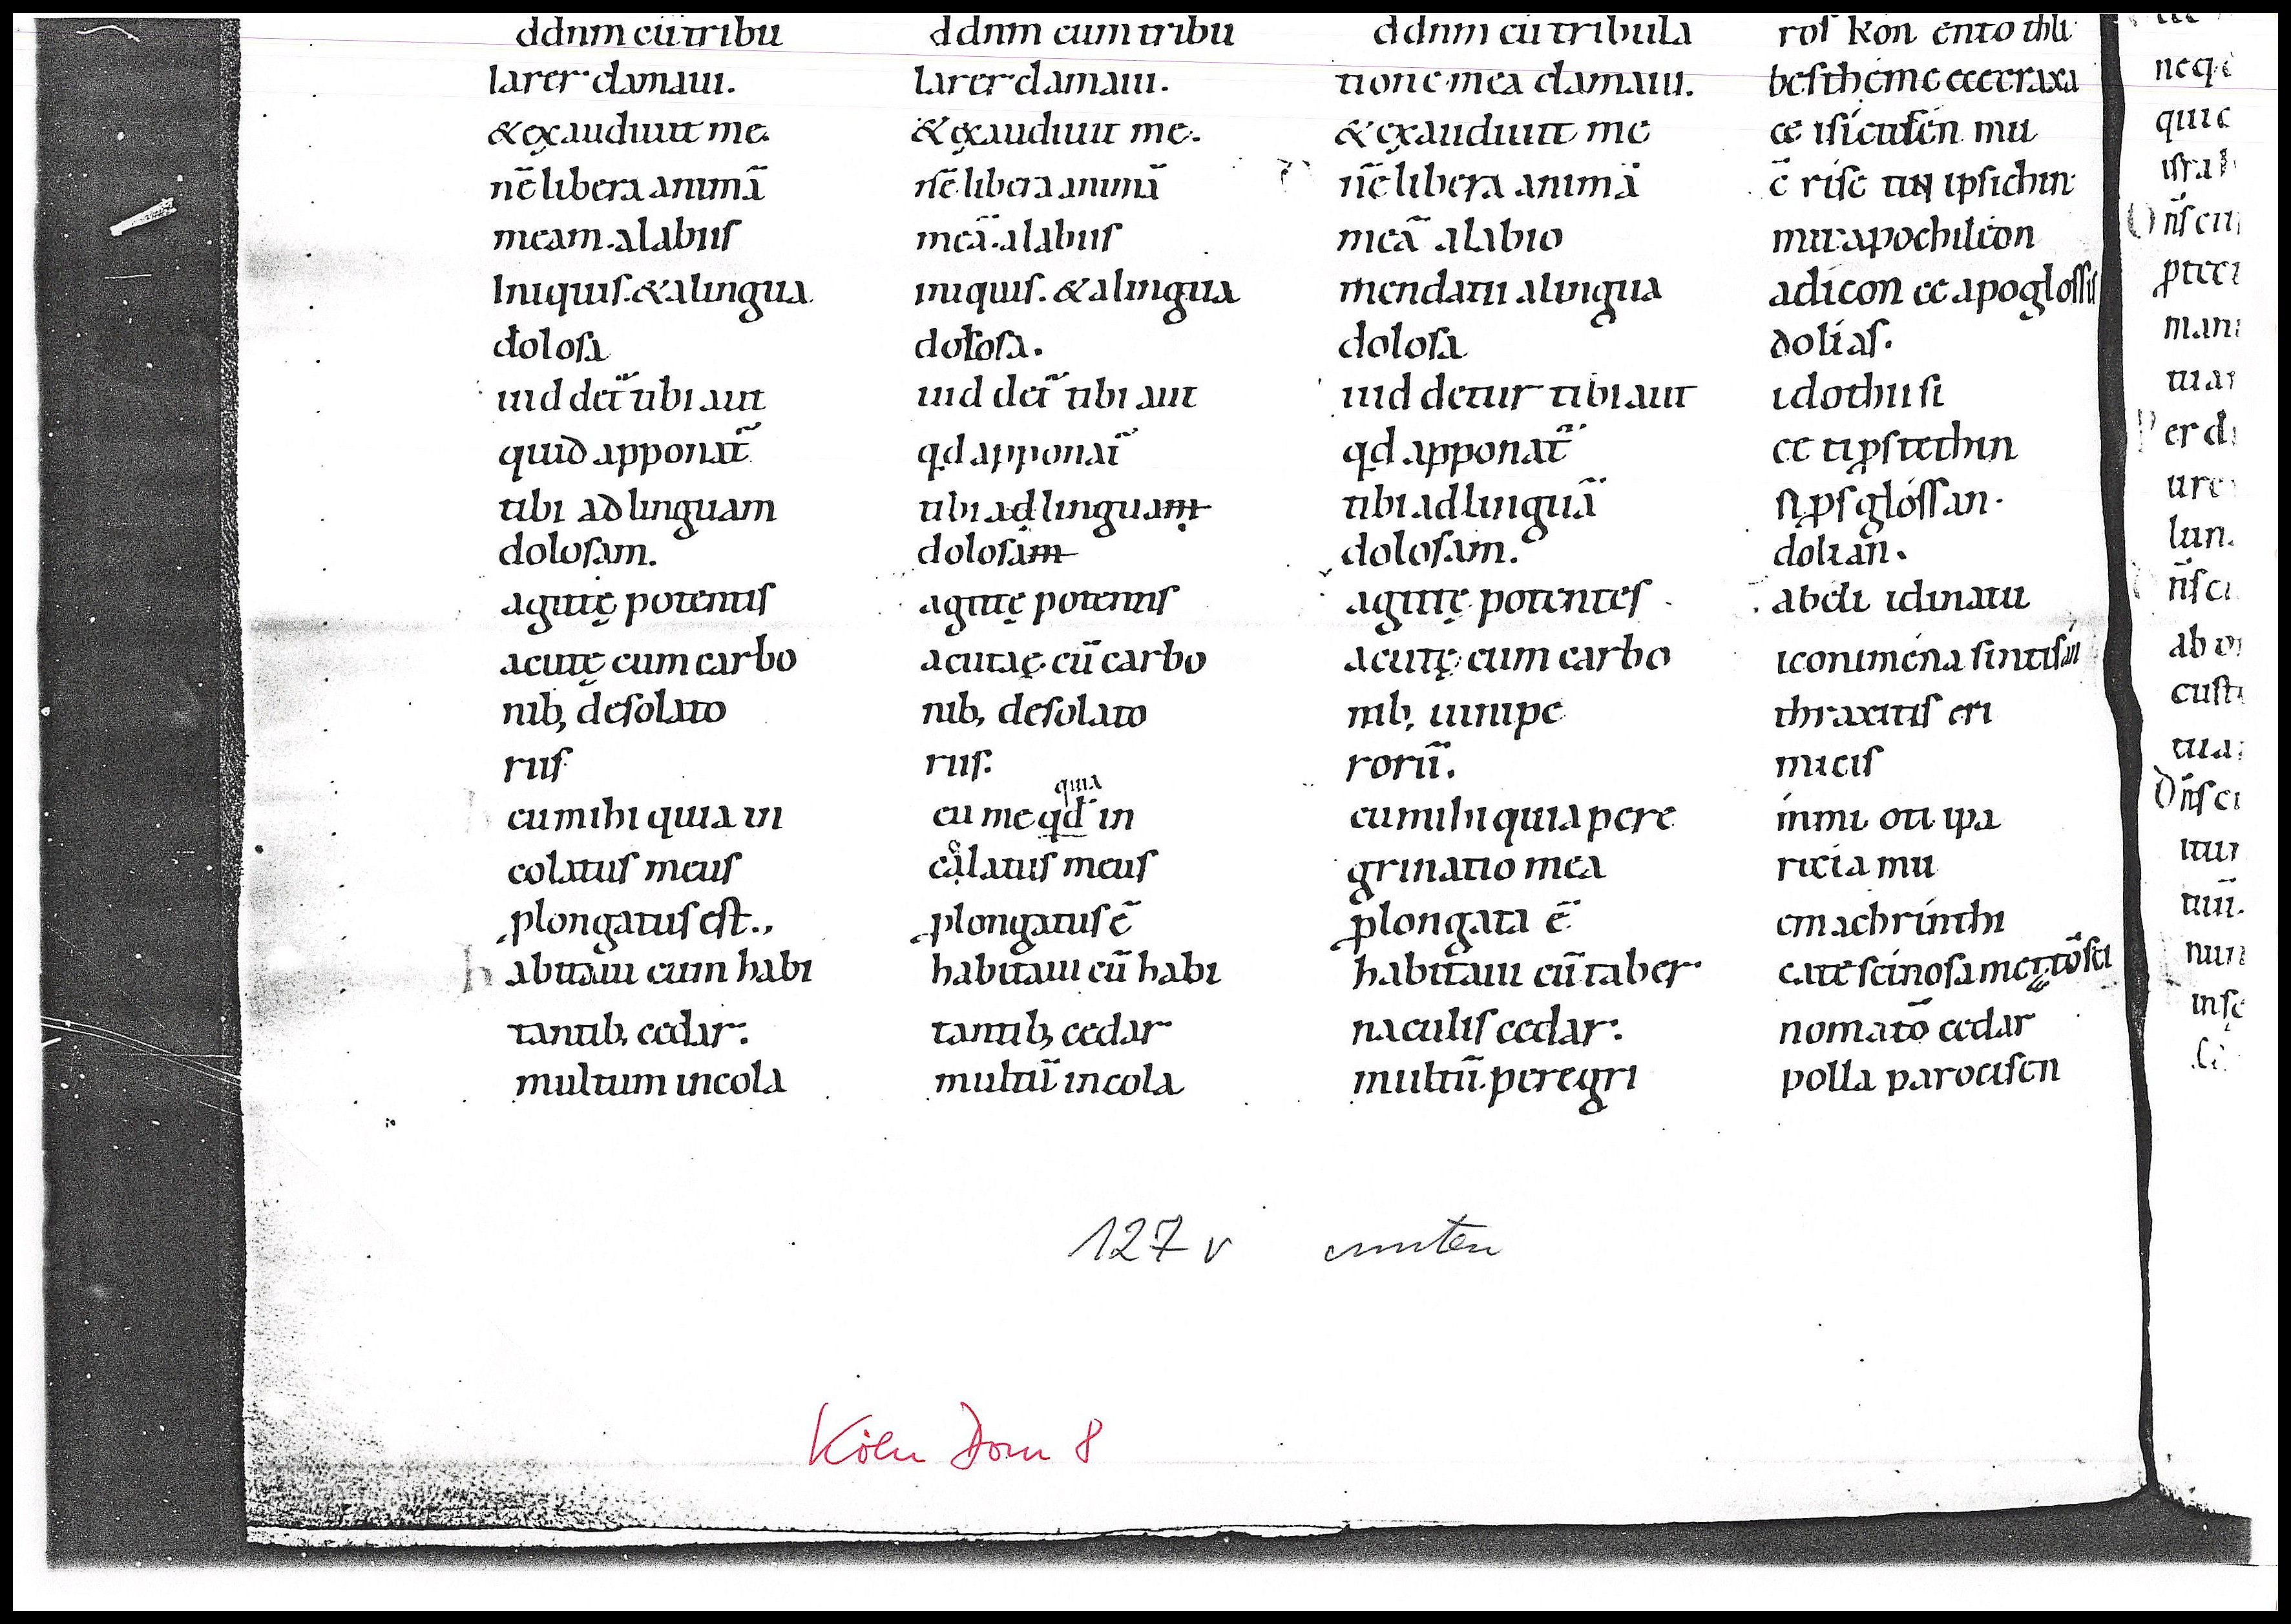 ddnm cū tribu
larer clamaui.
& exaudiuit me.
nē libera animā
meam. a labiis
Iniquis. & a lingua
dolosa
uid det̄ tibi aut
quid apponat̄
tibi ad linguam
dolosam.
agittę potentis
acutę cum carbo
nib; desolato
riis
eu mihi quia in
colatus meus
ꝓlongatus est.,
h abitaui cum habi
tantib; cedar.
multum incola
ddnm cum tribu
larer clamaui.
& exaudiuit me.
nē libera animā
meā. a labiis
iniquis. & a lingua
dolosa.
uid det̄ tibi aut
qd apponat̄
tibi ad linguam
dolosam
agittę potentis
acutae cū carbo
nib; desolato
riis.
quia
eu me qd in
colatus meus
ꝓlongatus ē
habitaui cū habi
tantib; cedar
multū incola
ddnm cū tribula
tione mea clamaui.
& exaudiuit me
nē libera animā
meā a labio
mendatii a lingua
dolosa
uid detur tibi aut
qd apponat̄
tibi ad linguā
dolosam.
agittę potentes
acutę cum carbo
nib; iunipe
rorū.
eu mihi quia pere
grinatio mea
ꝓlongata ē
habitaui cū taber
naculis cedar.
multū peregri
ros kon ento thli
besthéme ceceraxa
ce isicusén mu
c̄ rise tin ipsichin
mu apochiléon
adicon ce apoglossis
dolias.
idothii si
ce ti ꝓstethin
si ꝓs glóssan.
dolian.
abeli idinatu
iconiména sintisin
thraxitis eri
micis
inmi oti ipa
ricia mu
emachrinthi
catescinosa
nomatō cedar
polla parocisen
quic
israh
mani
tuar
er di
lun.
ab
custo
tua
Dn̄s cu
tuū.
nun
127 v unten
Köln Dom 8